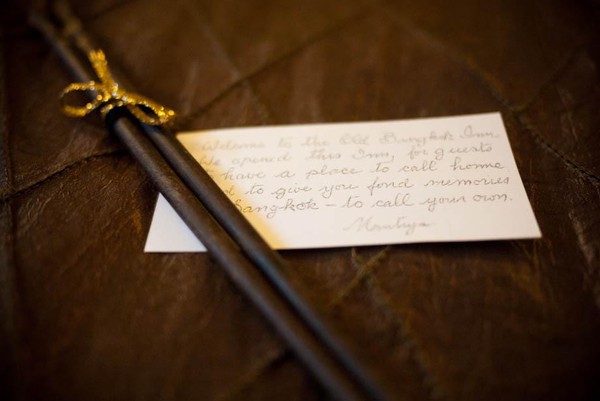 Welcome to the Old Bangkok Inn.
We opened this Inn, for guests
to have a place to call home
and to give you fond memories
Bangkok - to call your own.
Nantiya